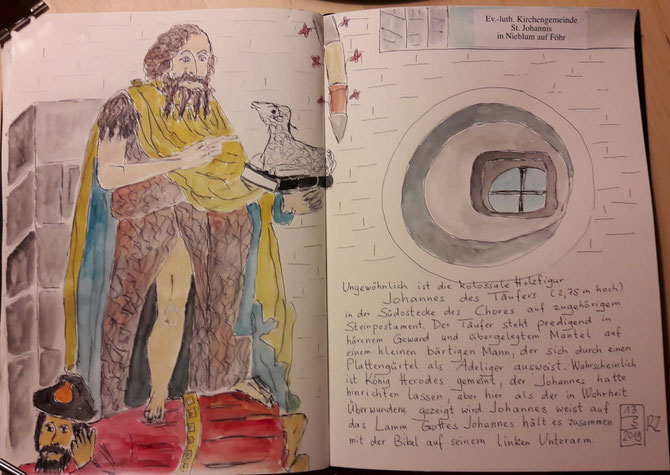 Ev.-luth. Kirchengemeinde
St. Johannis
in Nieblum auf Föhr
Ungewöhnlich ist die kolossale Holzfigur
Johannes des Täufers (2,75 m hoch)
in der Südostecke des Chores auf zugehörigem
Steinpostament. Der Täufer steht predigend in
härenem Gewand und übergelegtem Mantel auf
einem kleinen bärtigen Mann, der sich durch einen
Plattengürtel als Adeliger ausweist. Wahrscheinlich
ist König Herodes gemeint, der Johannes hatte
hinrichten lassen, aber hier als der in Wahrheit
Überwundene gezeigt wird. Johannes weist auf
das Lamm Gottes. Johannes hält es zusammen
mit der Bibel auf seinem linken Unterarm.
2019
RZ